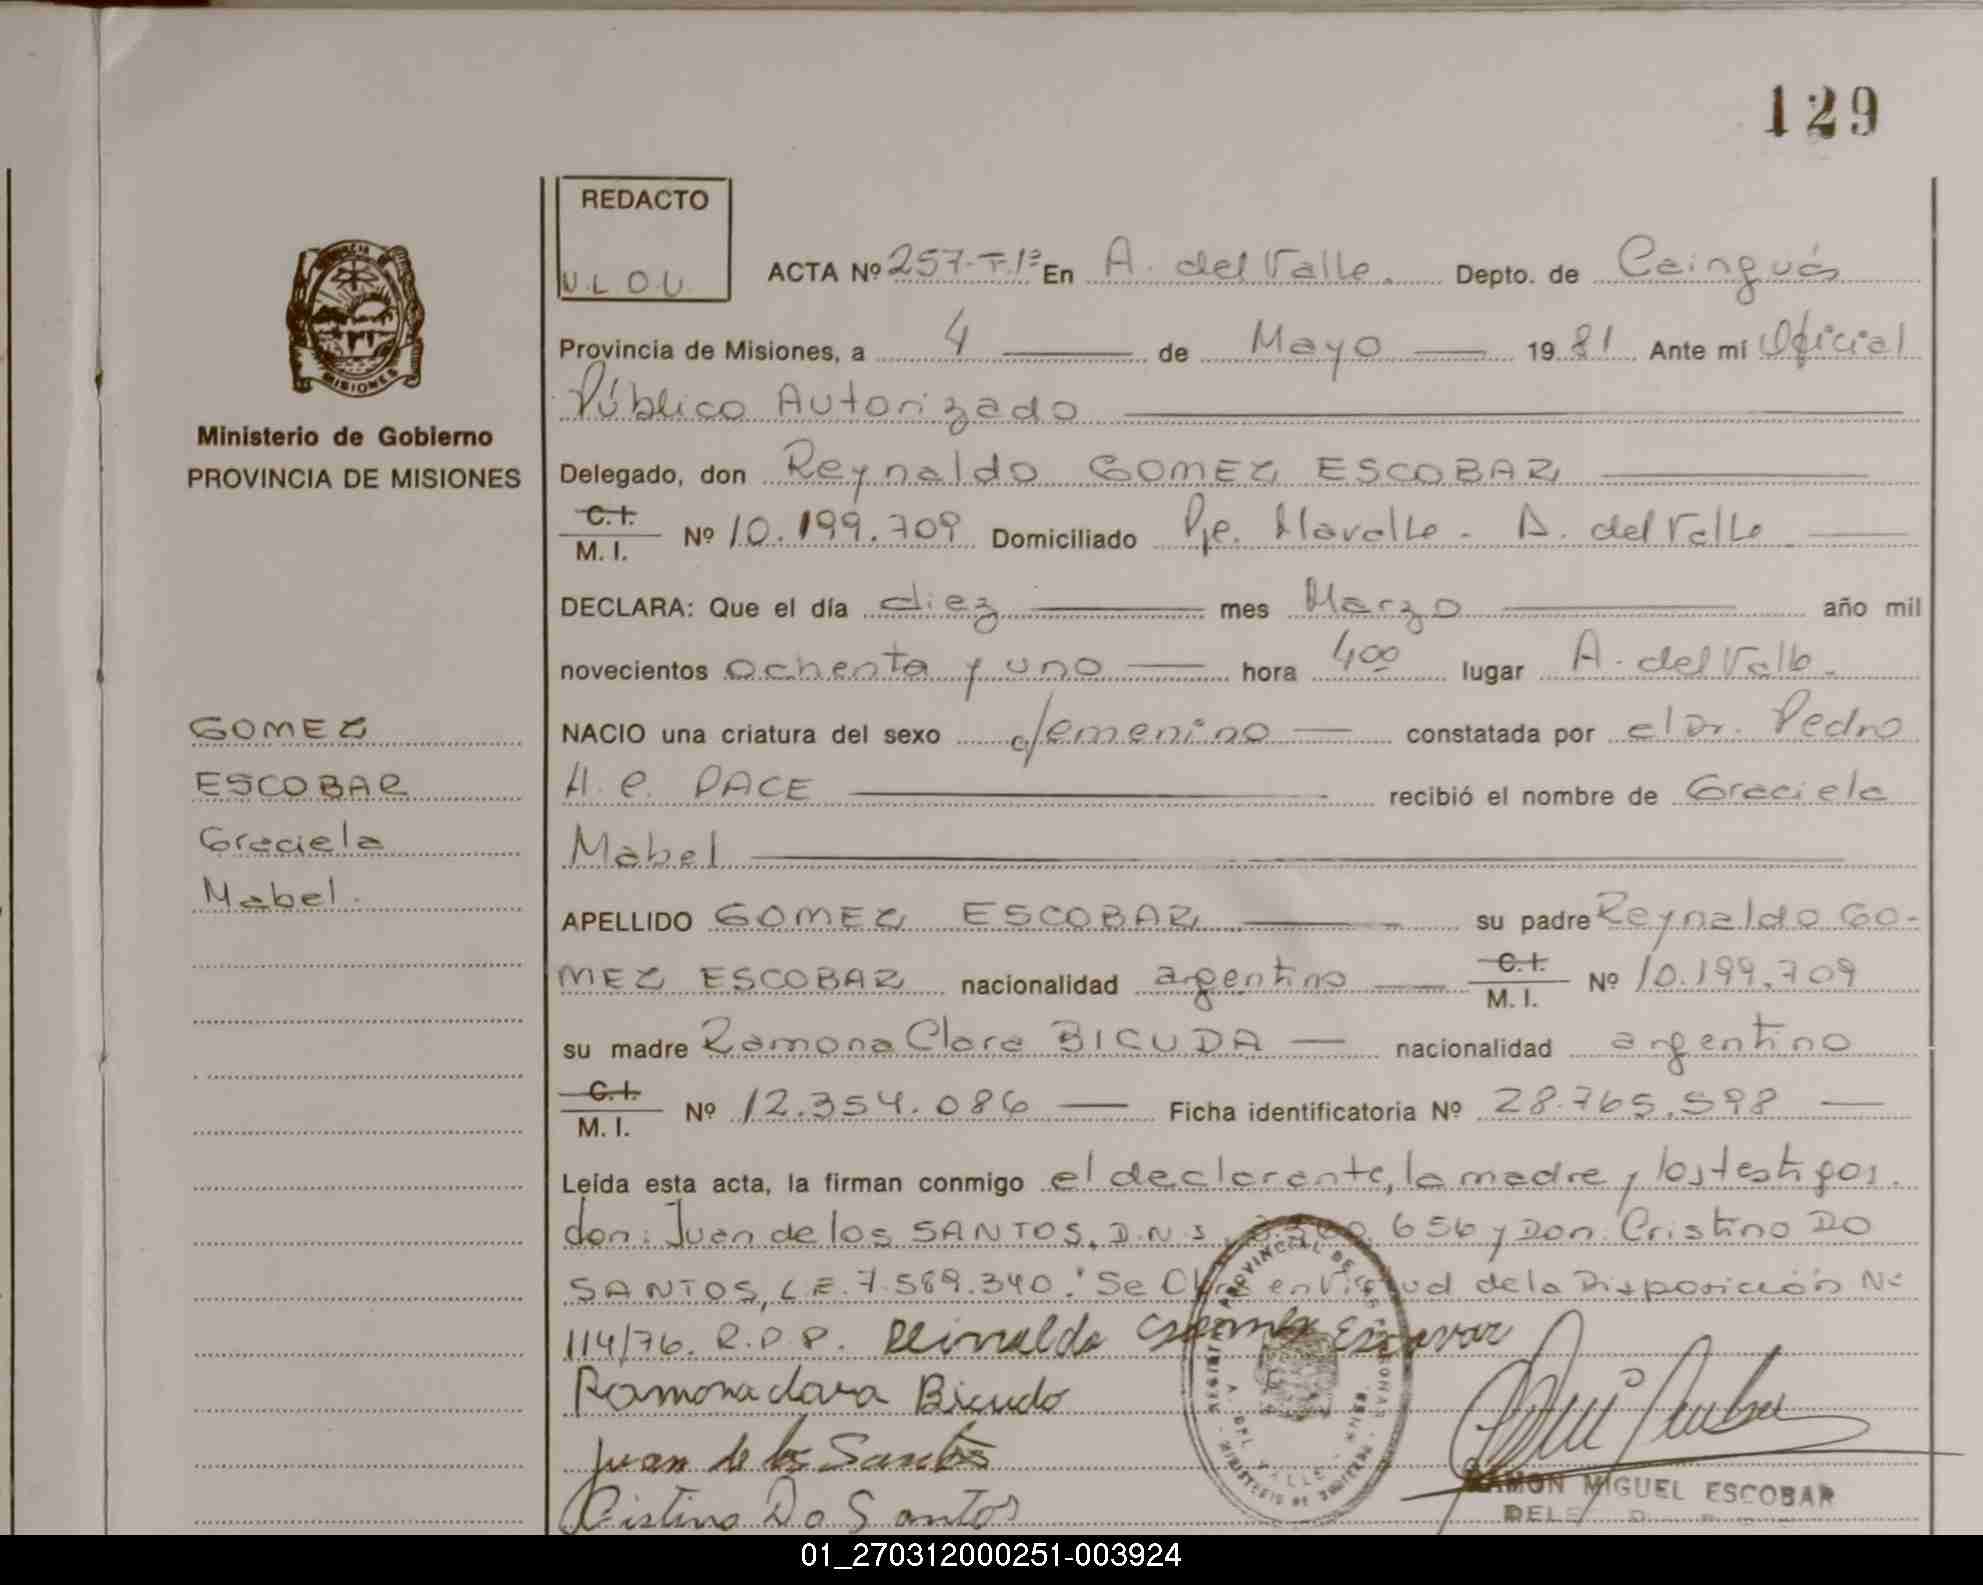 129
REDACTO
V.L.O.U.
ACTA Nº 257-T.1º En A. del Valle. Depto. de Cainguás
Provincia de Misiones, a 4 de Mayo 1981 Ante mí Oficial
Público Autorizado
Delegado, don Reynaldo GOMEZ ESCOBAR
C. I.
M. I. Nº 10.199.709 Domiciliado Pje. Mavalle - A. del Valle
DECLARA: Que el día diez mes Marzo año mil
novecientos ochenta y uno hora 4oo lugar A. del Valle.
NACIO una criatura del sexo femenino constatada por el Dr. Pedro
H. C. PACE recibió el nombre de Graciela
Mabel
APELLIDO GOMEZ ESCOBAR su padre Reynaldo GO-
MEZ ESCOBAR nacionalidad argentino C. I. M. I. Nº 10.199.709
su madre Ramona Clara BICUDA nacionalidad argentino
C. I.
M. I. Nº 12.354.086 Ficha identificatoria Nº 28.765.598
Leída esta acta, la firman conmigo el declarante, la madre y los testigos.
don: Juan de los SANTOS, D.N.I. 656 y Don. Cristino DO
SANTOS, L.E. 7.589.340. "Se en virtud de la Disposición Nº
114/76. R.P.P. Reinaldo Gomez Escovar
Ramona clara Bicudo
Juan de los Santos
Cristino Do Santos
RAMON MIGUEL ESCOBAR
MISIONES
Ministerio de Gobierno
PROVINCIA DE MISIONES
GOMEZ
ESCOBAR
Graciela
Mabel.
01_270312000251-003924